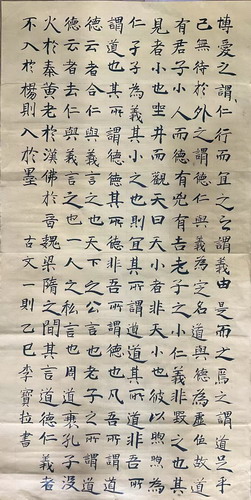 博愛之謂仁行而宜之之謂義由是而之焉之謂道足乎
己無待於外之謂德仁與義為定名道與德為虛位故道
有君子小人而德有兇有吉老子之小仁義非毀之也其
見者小也坐井而觀天曰天小者非天小也彼以煦煦為
仁孑孑為義其小之也則宜其所謂道道其所道非吾所
謂道也其所謂德德其所德非吾所謂德也凡吾所謂道
德云者合仁與義言之也天下之公言也老子之所謂道
德云者去仁與義言之也一人之私言也周道衰孔子沒
火於秦黃老於漢佛於晉魏梁隋之間其言道德仁義者
不入於楊則入於墨 古文一則乙巳李寶拉書